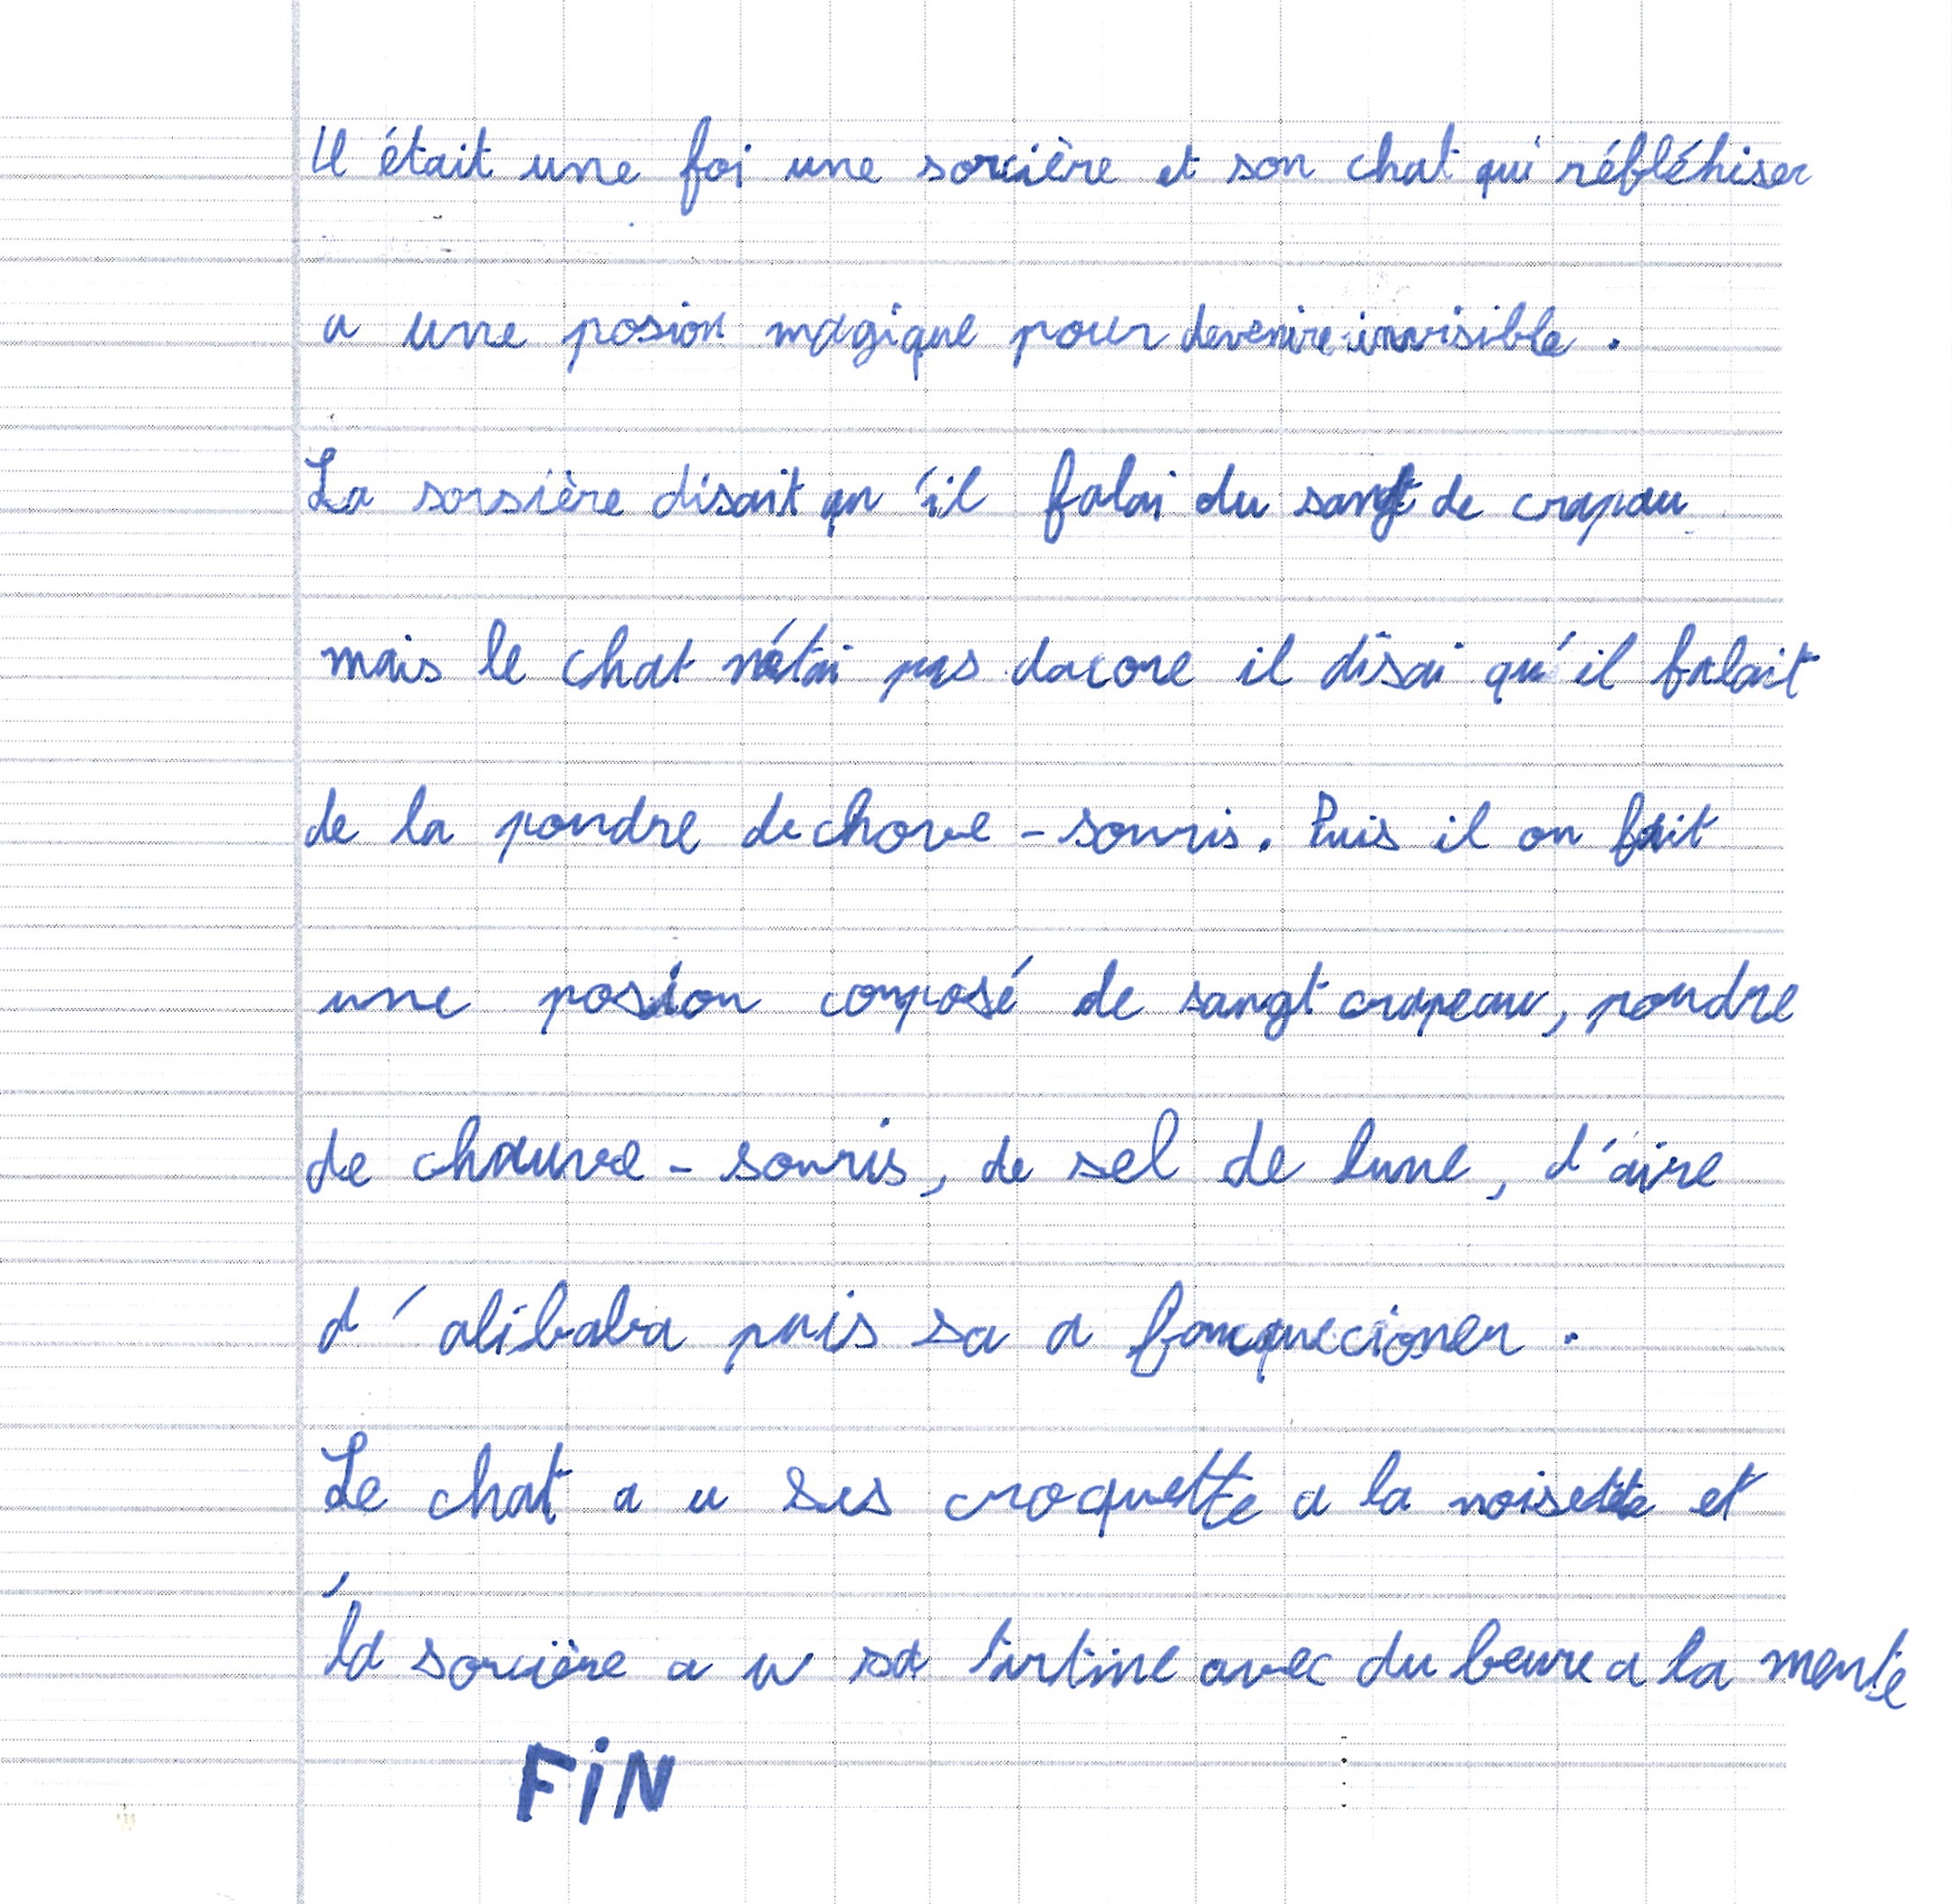 Il était une foi une sorcière et son chat qui réfléhiser
a une posion magique pour devenire invisible.
La sorsière disait qu'il falai du sangt de crapau
mais le chat n'étai pas dacore il disai qu'il falait
de la poudre de chove-souris. Puis il on fait
une posion composé de sangt crapeau, poudre
de chauve-souris, de sel de lune, d'aire
d'alibaba puis sa a fonquecioner.
Le chat a u ses croquette a la noisette et
la sorcière a u sa tartine avec du beure a la mente
FiN